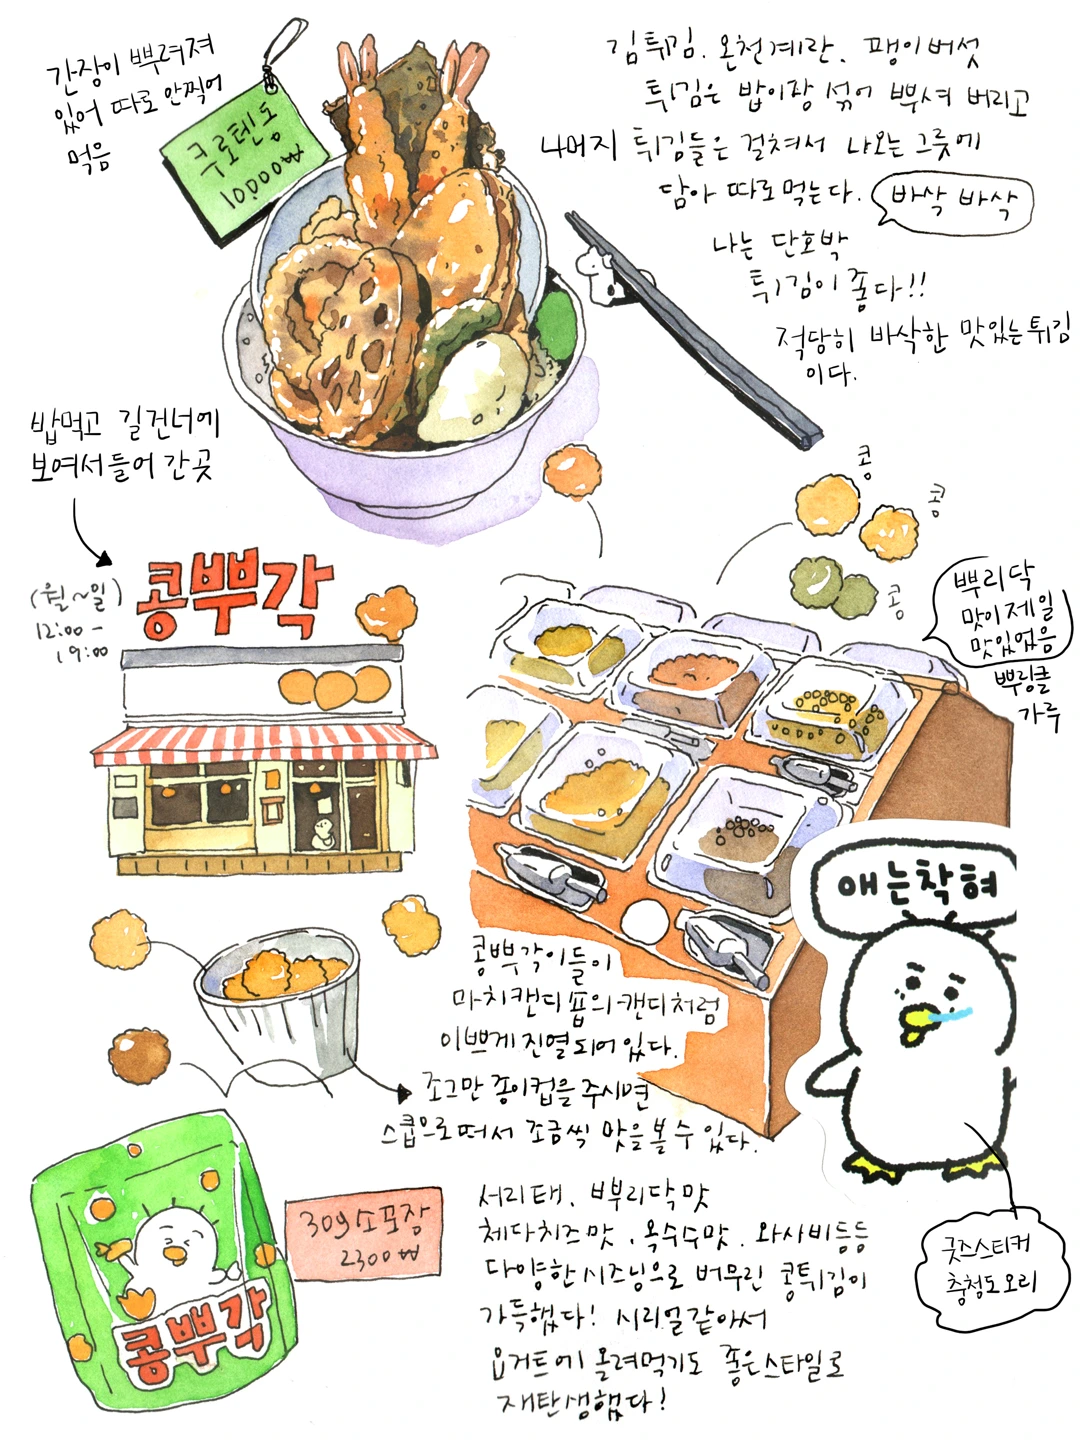 간장이 뿌려져
있어 따로 안찍어
먹음
쿠로텐동
10000₩
김튀김. 온천계란. 팽이버섯
튀김은 밥이랑 섞어 뿌셔 버리고
나머지 튀김들은 걸쳐서 나오는 그릇에
담아 따로먹는다.
바삭 바삭
나는 단호박
튀김이 좋다!!
적당히 바삭한 맛있는 튀김
이다.
밥먹고 길건너에
보여서 들어 간곳
(월~일)
12:00 -
19:00
콩뿌각
콩
콩
콩
뿌리닥
맛이 제일
맛있었음
뿌링클
가루
애는착혀
콩뿌각이들이
마치캔디숍의 캔디처럼
이쁘게 진열되어 있다.
조그만 종이컵을 주시면
스쿱으로 떠서 조금씩 맛을 볼 수 있다.
30g 소포장
2300₩
콩뿌각
서리태. 뿌리닥맛
체다치즈맛. 옥수수맛. 와사비등등
다양한 시즈닝으로 버무린 콩튀김이
가득했다! 시리얼같아서
요거트에 올려먹기도 좋은스타일로
재탄생했다!
굿즈스티커
충청도오리